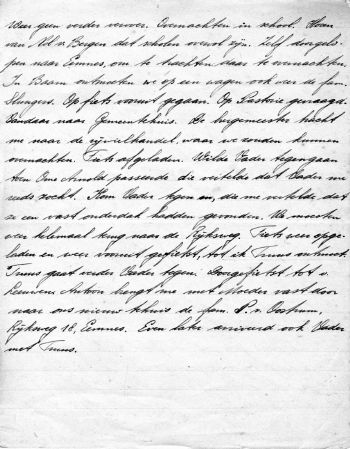 Daar geen verder vervoer. Overnachten in school. Hoor
van Nel v. Bergen dat scholen overvol zijn. Zelf doorgelo-
pen naar Eemnes, om te trachten daar te overnachten.
In Baarn ontmoeten we op een wagen ook weer de fam.
Slungers. Op fiets vooruit gegaan. Op Pastorie gevraagd.
Vandaar naar Gemeentehuis. De burgemeester bracht
me naar de rijwielhandel, waar we zouden kunnen
overnachten. Fiets afgeladen. Wilde Vader tegengaan
toen Ome Arnold passeerde die vertelde dat Vader me
reeds zocht. Kom Vader tegen en, die me vertelde, dat
ze een vast onderdak hadden gevonden. We moesten
weer helemaal terug naar de Rijksweg. Fiets weer opge-
laden en weer vooruit gefietst, tot ik Truus ontmoet.
Truus gaat verder Vader tegen. Doorgefietst tot v.
Leeuwen. Antoon brengt me met Moeder vast door
naar ons nieuw tehuis de fam. P. v. Oostrum,
Rijksweg 18, Eemnes. Even later arriveerd ook Vader
met Truus.